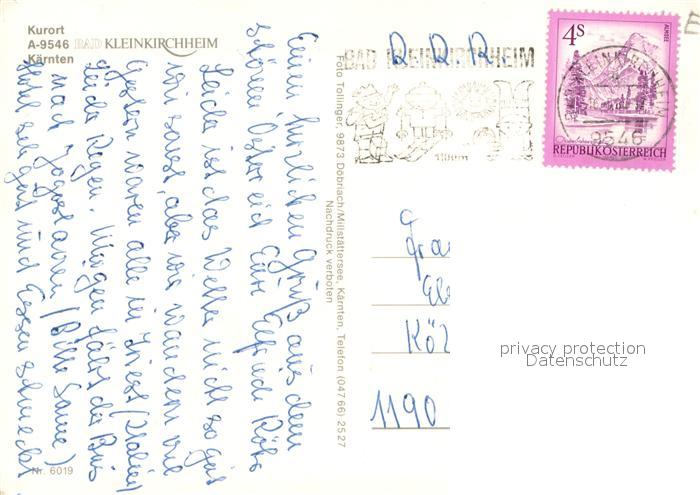 Kurort
A-9546 BAD KLEINKIRCHHEIM
Kärnten
Einen herzlichen Gruß aus dem
schönen Österreich Eure Elfriede
Leider ist das Wetter nicht so gut
wie sonst, aber wir wandern viel
Gestern waren alle in Triest (Italien)
Leider Regen. Morgen fährt der Bus
nach Jugoslavien (Bitte Sonne)
Hotel sehr gut und Essen schmeckt
Nr. 6019
Foto Tollinger, 9873 Döbriach/Millstättersee, Kärnten, Telefon (047 66) 25 27
Nachdruck verboten
BAD KLEINKIRCHHEIM
R. R. R.
4S
ALMSEE
REPUBLIK ÖSTERREICH
9546
1190
privacy protection
Datenschutz